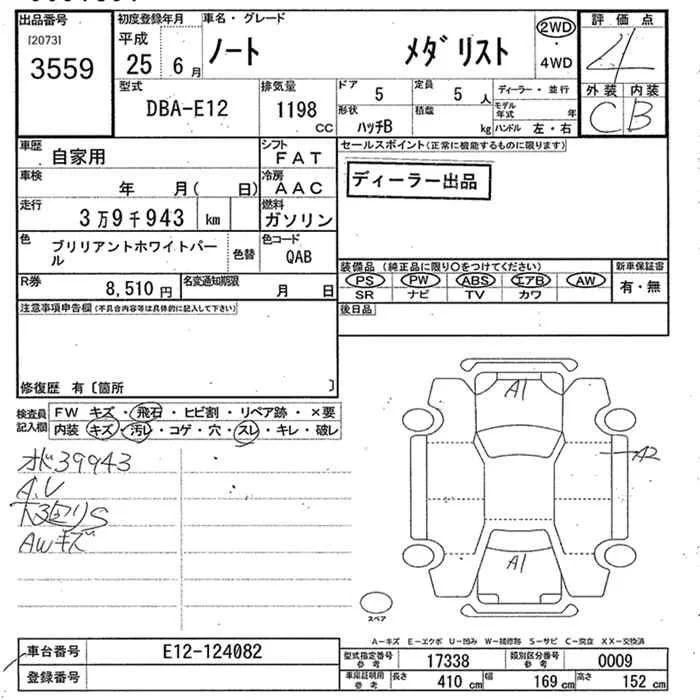 出品番号
[2073]
3559
初度登録年月
平成
25 6月
車名・グレード
ノート メダリスト
2WD
・
4WD
評価点
4
外装 内装
C B
型式
DBA-E12
排気量
1198 CC
ドア 5
定員 5 人
形状 ハッチB
積載 kg
ディーラー・並行
モデル年式 年
ハンドル 左・右
車歴 自家用
シフト FAT
車検 年 月( 日)
冷房 AAC
走行 3万9千943 km
燃料 ガソリン
色 ブリリアントホワイトパール
色替
色コード QAB
R券 8,510円
名変通知期限 月 日
セールスポイント(正常に機能するものに限ります)
ディーラー出品
装備品(純正品に限り○をつけてください)
PS PW ABS エアB AW
SR ナビ TV カワ
新車保証書
有・無
後日品
注意事項申告欄(不具合内容等は具体的に記入して下さい)
修復歴 有〔箇所 〕
検査員記入欄
FW キズ・飛石・ヒビ割・リペア跡・×要
内装 キズ・汚レ・コゲ・穴・スレ・キレ・破レ
オド39943
A,V
下回りS
AWキズ
A1
A2
A1
スペア
A-キズ E-エクボ U-凹み W-補修跡 S-サビ C-腐食 XX-交換済
車台番号 E12-124082
登録番号
型式指定番号 参考 17338
類別区分番号 参考 0009
車庫証明用 参考 長さ 410 cm 幅 169 cm 高さ 152 cm